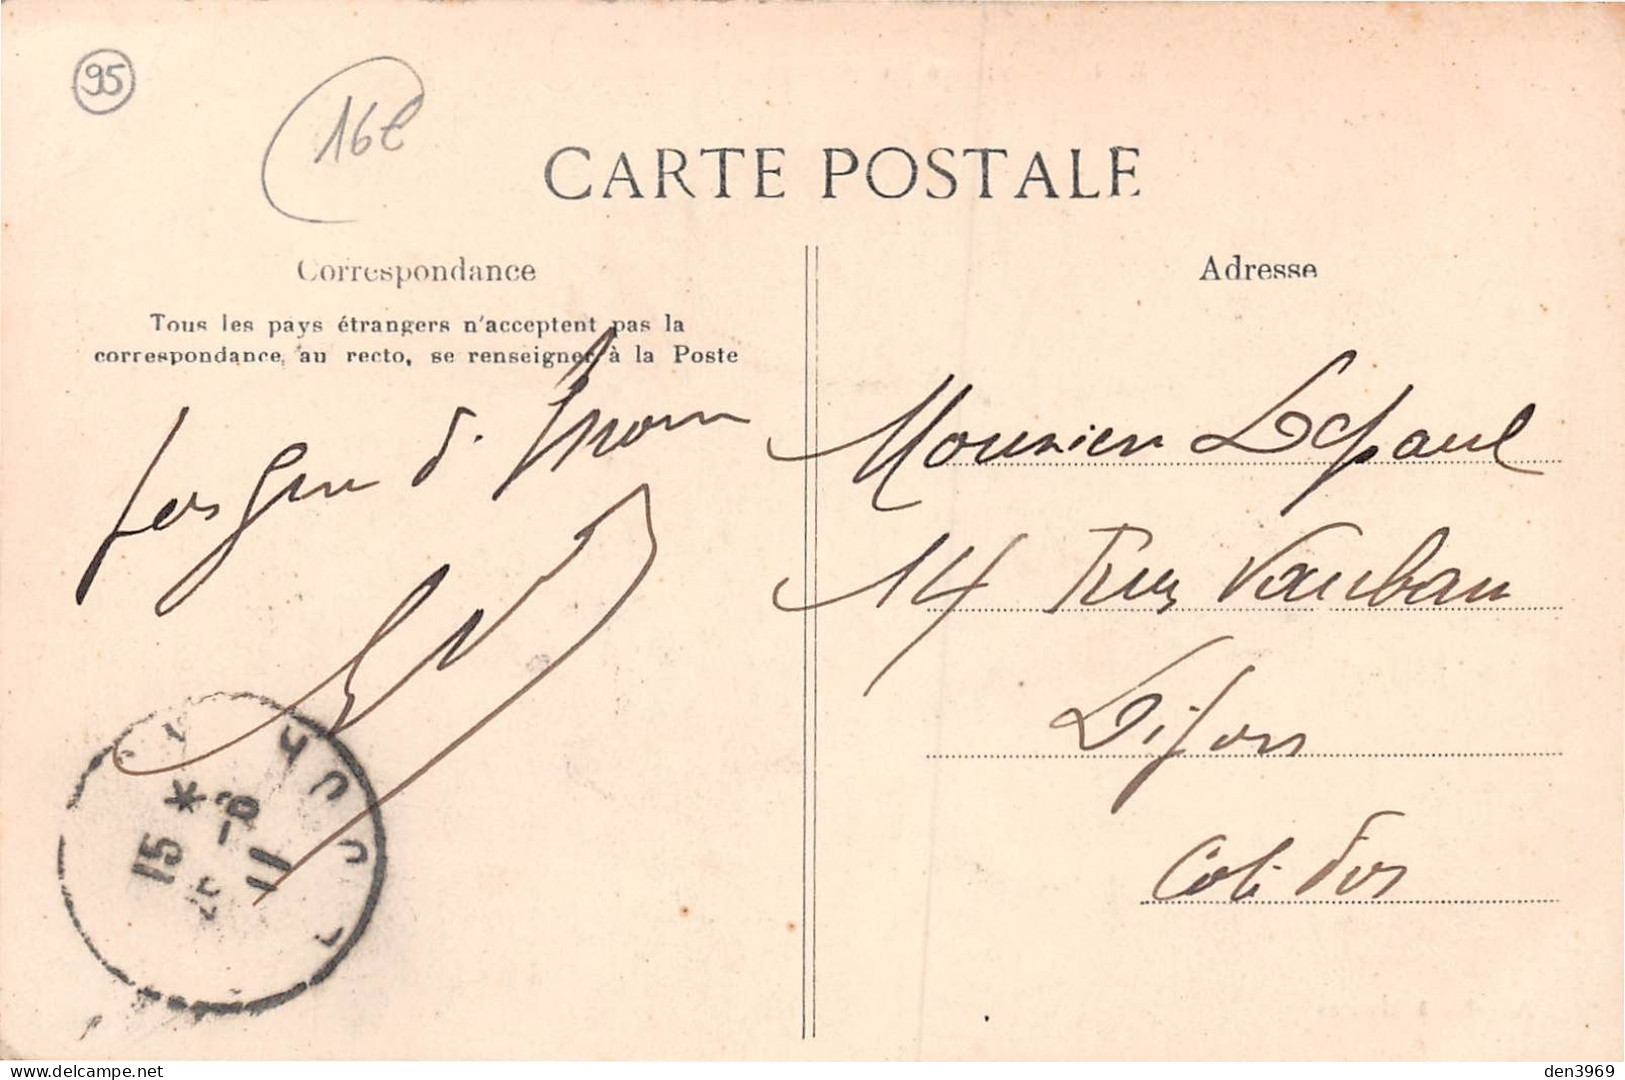 95
16€
CARTE POSTALE
Correspondance
Tous les pays étrangers n'acceptent pas la
correspondance au recto, se renseigner à la Poste
Adresse
Monsieur Lepaul
14 Rue Vauban
Dijon
Côte d'or
15 *
25 -8
11
delcampe.net
den3969